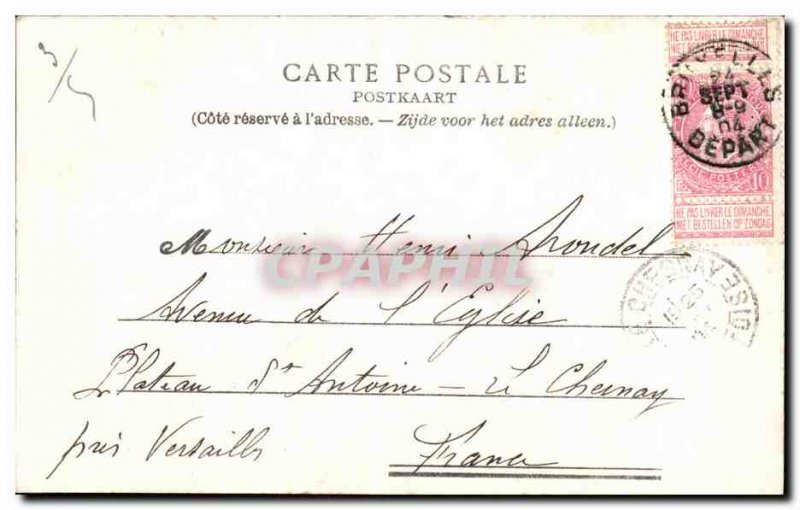 CARTE POSTALE
POSTKAART
(Côté réservé à l'adresse. — Zijde voor het adres alleen.)
NE PAS LIVRER LE DIMANCHE
BRUXELLES
24
SEPT
8-9
04
DÉPART
10
NE PAS LIVRER LE DIMANCHE
NIET BESTELLEN OP ZONDAG
LE CHESNAY
25
Monsieur Henri Arondel
CPAPHIL
Avenue de l'Eglise
Plateau St Antoine - Le Chesnay
près Versailles
France